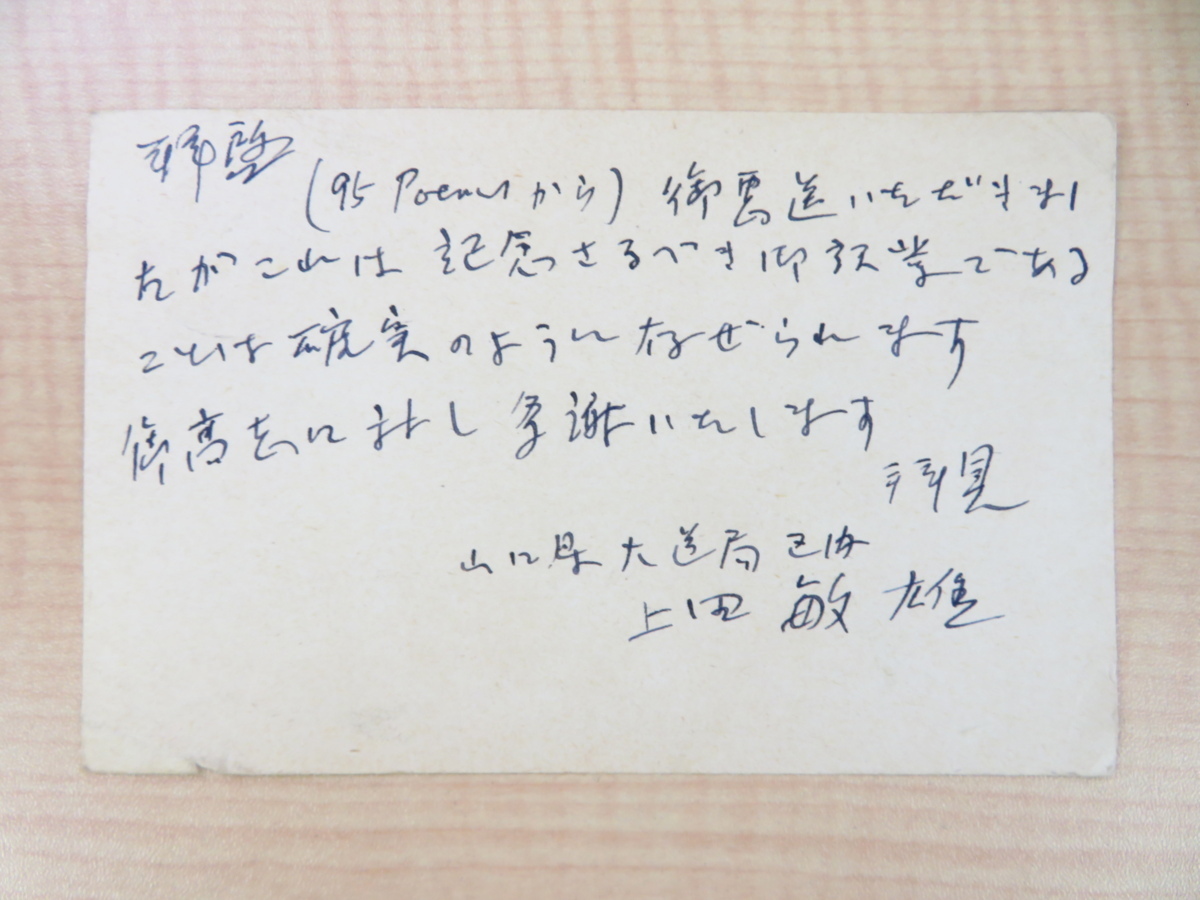 拝啓
(95 Poemsから) 御恵送いただきまし
たがこれは 記念さるべき御訳業である
ことは確実のように存ぜられます
御高志に対し多謝いたします
拝具
山口県大道局区内
上田敏雄